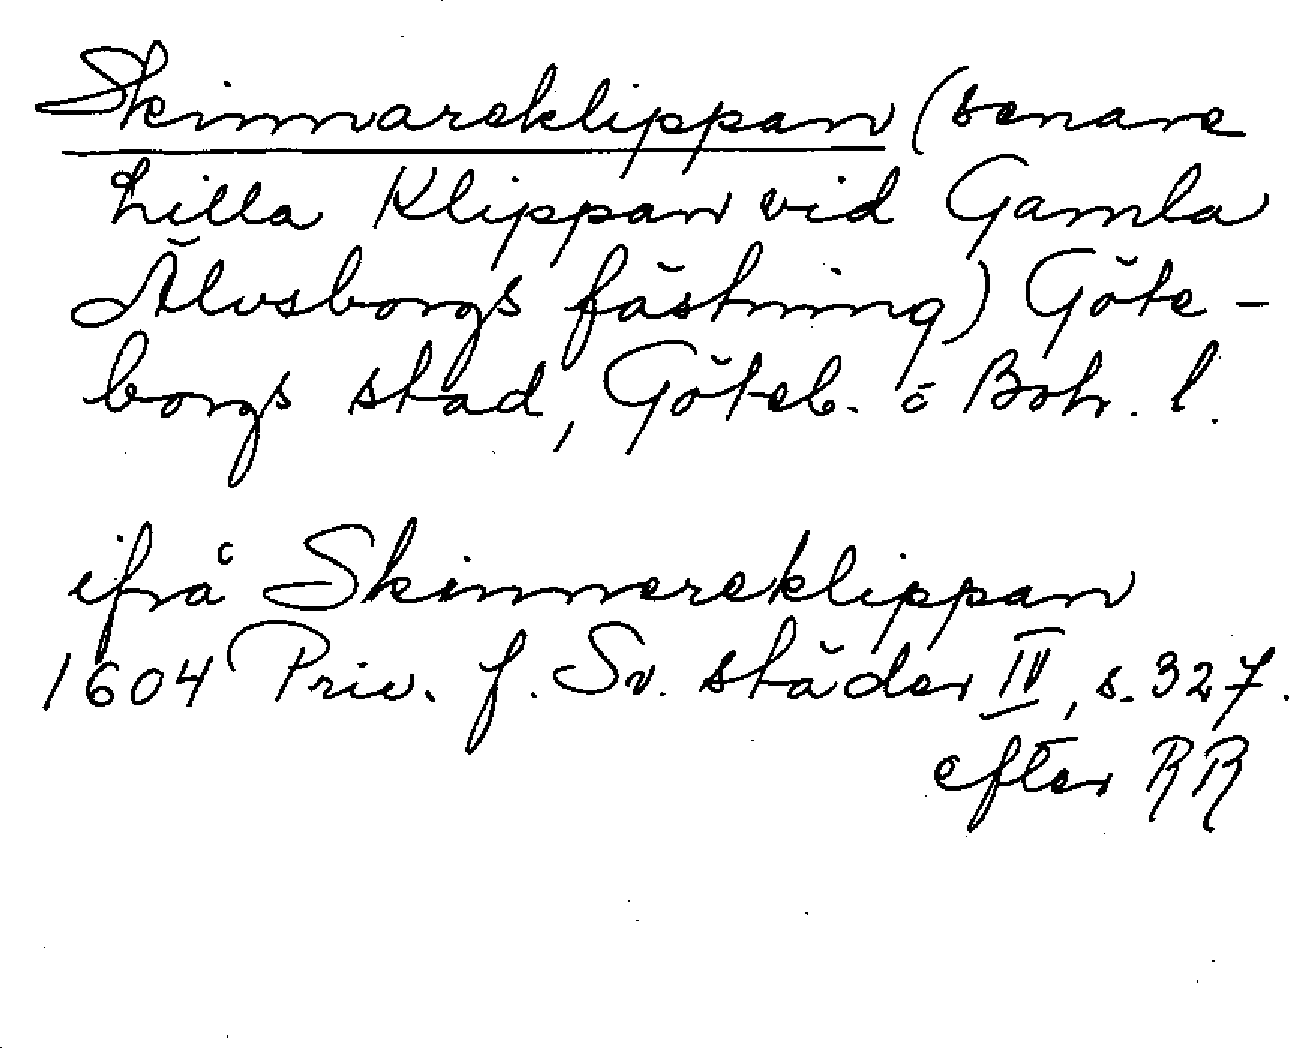 Skinnareklippan (senare
Lilla Klippan vid Gamla
Älvsborgs fästning) Göte-
borgs stad, Göteb. o Boh. l.
ifrå Skinnereklippan
1604 Priv. f. Sv. städer IV, s. 327.
efter RR